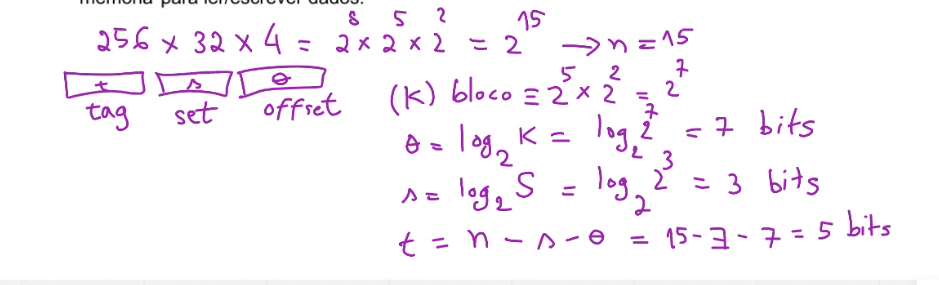 memória para ler/escrever dados.
256 × 32 × 4 = 2⁸ × 2⁵ × 2² = 2¹⁵ → n = 15
t s θ
tag set offset
(K) bloco = 2⁵ × 2² = 2⁷
θ = log₂ K = log₂ 2⁷ = 7 bits
s = log₂ S = log₂ 2³ = 3 bits
t = n - s - θ = 15 - 3 - 7 = 5 bits